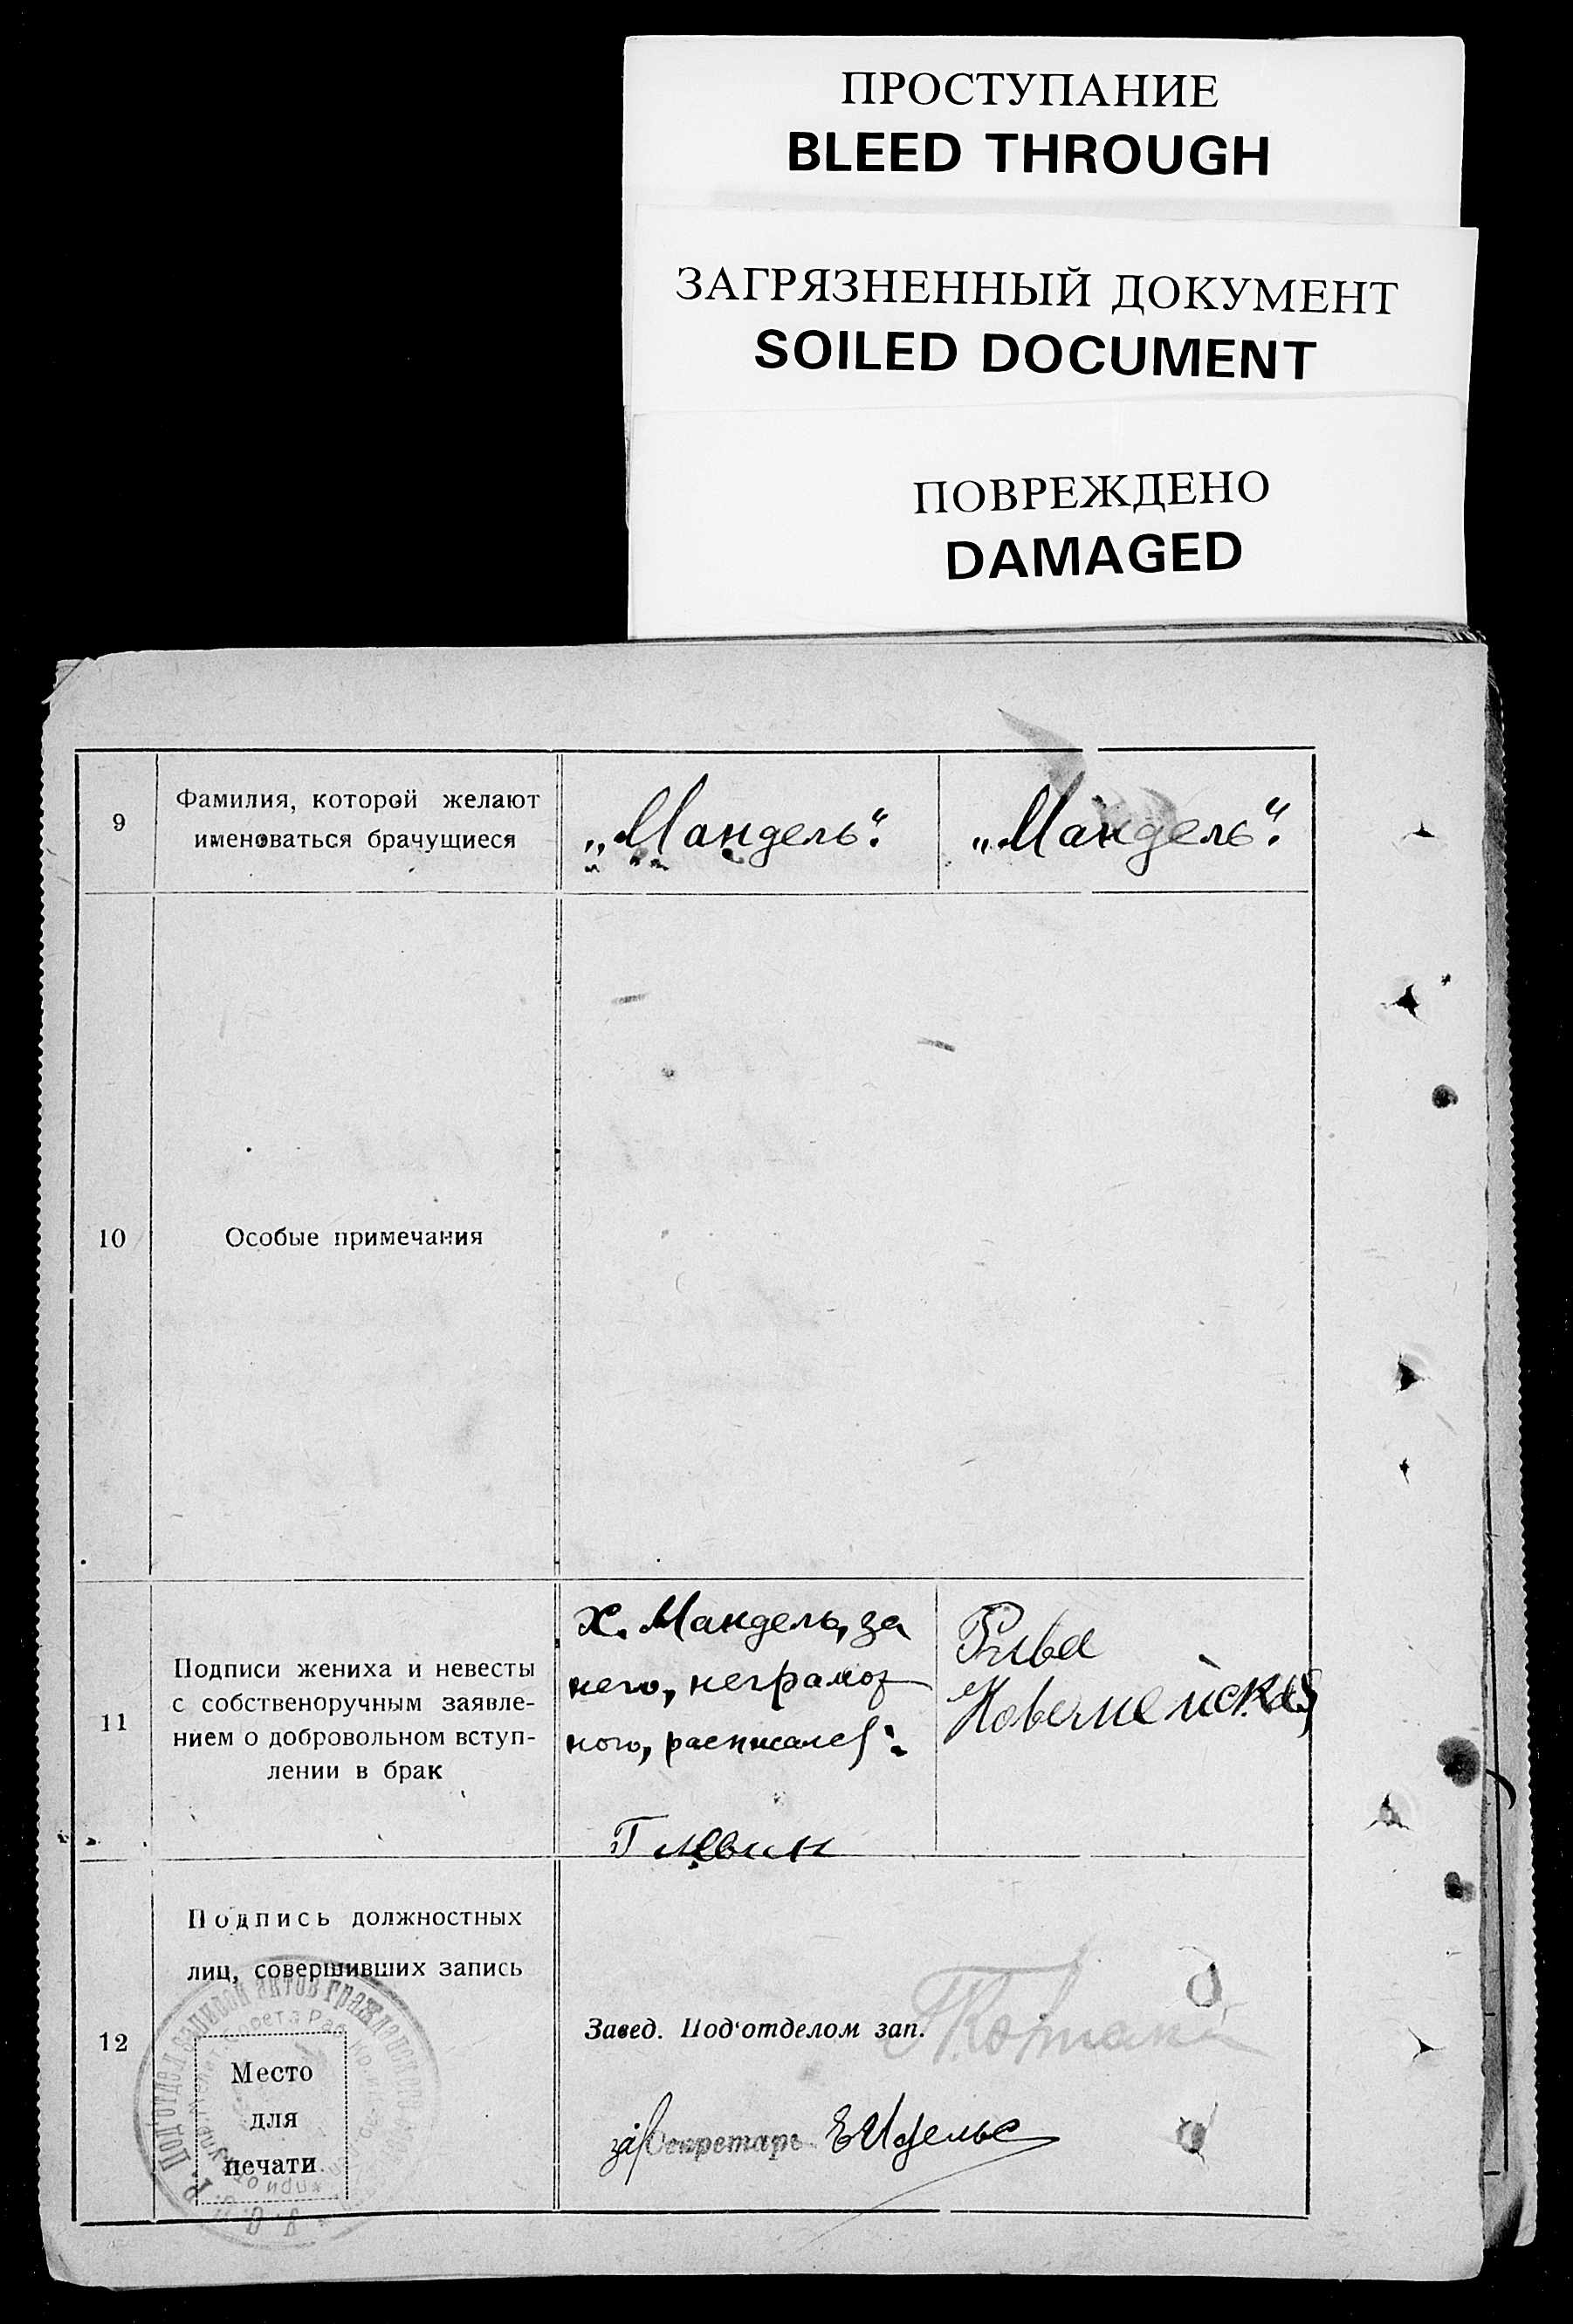 ПРОСТУПАНИЕ
BLEED THROUGH
ЗАГРЯЗНЕННЫЙ ДОКУМЕНТ
SOILED DOCUMENT
ПОВРЕЖДЕНО
DAMAGED
9
Фамилия, которой желают
именоваться брачущиеся
„Мандель“.
„Мандель“.
10
Особые примечания
11
Подписи жениха и невесты
с собственоручным заявле-
нием о добровольном вступ-
лении в брак
Х. Мандель, за
него, неграмот
ного, расписался:
Г Левин
Рива
12
Подпись должностных
лиц, совершивших запись
Место
для
печати
Завед. Под'отделом зап.
за Секретарь